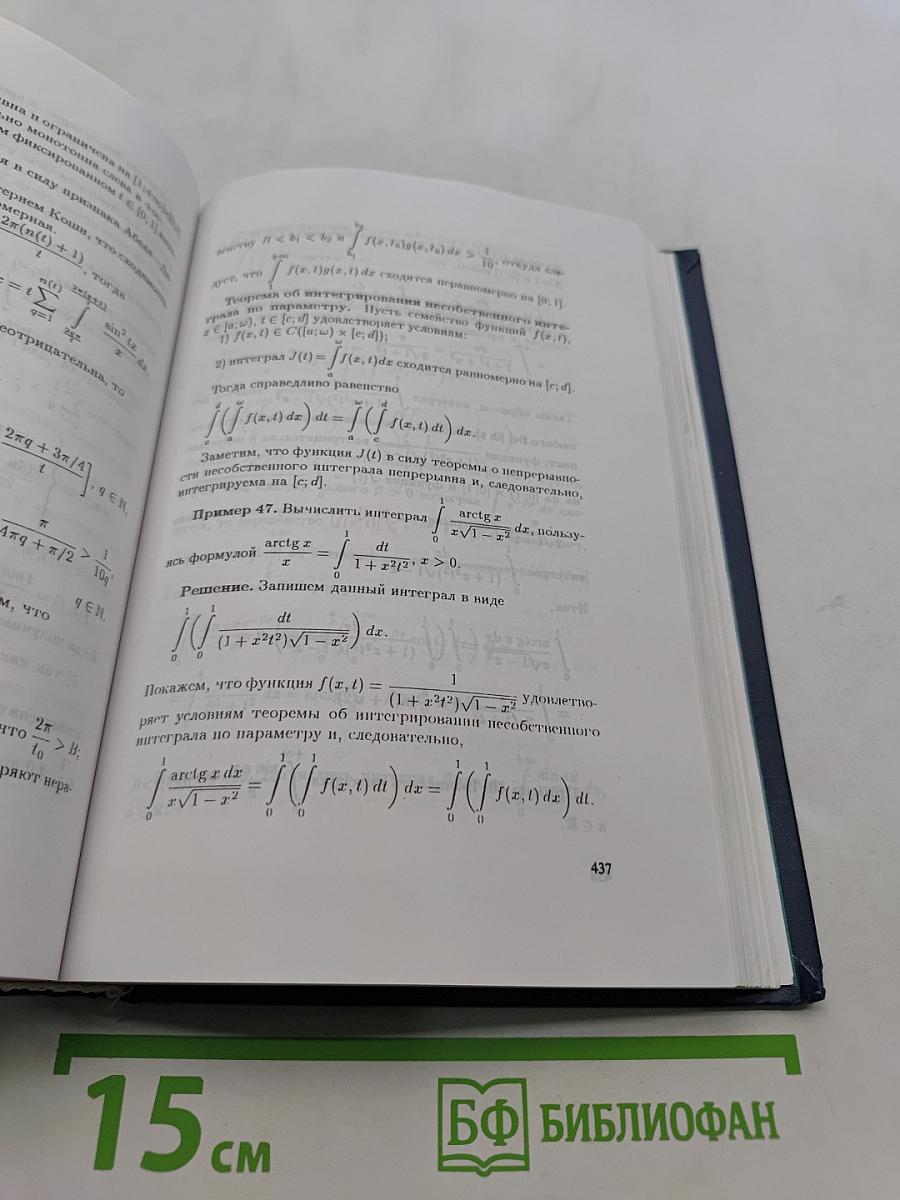 вна и ограничена на [1;
ьно монотонна слева в
м фиксированном t ∈ [0; 1]
я в силу признака Абеля — Ди-
терием Коши, что сходимость
омерная.
2π(n(t) + 1)/t, тогда
= t ∑_{q=1}^{n(t)} ∫ sin² tx / x dx.
еотрицательна, то
2πq + 3π/4 / t ], q ∈ N,
π / 4πq + π/2 > 1/10q,
q ∈ N.
м, что
что 2π/t₀ > B;
ряют нера-
B < b₁ < b₂ и ∫_{b₁}^{b₂} f(x, t₀)g(x, t₀) dx > 1/10, откуда сле-
дует, что ∫_1^{+∞} f(x, t)g(x, t) dx сходится неравномерно на [0; 1].
Теорема об интегрировании несобственного инте-
грала по параметру. Пусть семейство функций f(x, t),
x ∈ [a; ω), t ∈ [c; d] удовлетворяет условиям:
1) f(x, t) ∈ C([a; ω) × [c; d]);
2) интеграл J(t) = ∫_a^ω f(x, t) dx сходится равномерно на [c; d].
Тогда справедливо равенство
∫_c^d (∫_a^ω f(x, t) dx) dt = ∫_a^ω (∫_c^d f(x, t) dt) dx.
Заметим, что функция J(t) в силу теоремы о непрерывно-
сти несобственного интеграла непрерывна и, следовательно,
интегрируема на [c; d].
Пример 47. Вычислить интеграл ∫_0^1 arctg x / x√(1 − x²) dx, пользу-
ясь формулой arctg x / x = ∫_0^1 dt / 1 + x²t², x > 0.
Решение. Запишем данный интеграл в виде
∫_0^1 (∫_0^1 dt / (1 + x²t²)√(1 − x²)) dx.
Покажем, что функция f(x, t) = 1 / (1 + x²t²)√(1 − x²) удовлетво-
ряет условиям теоремы об интегрировании несобственного
интеграла по параметру и, следовательно,
∫_0^1 arctg x dx / x√(1 − x²) = ∫_0^1 (∫_0^1 f(x, t) dt) dx = ∫_0^1 (∫_0^1 f(x, t) dx) dt.
437
15 см
БФ БИБЛИОФАН